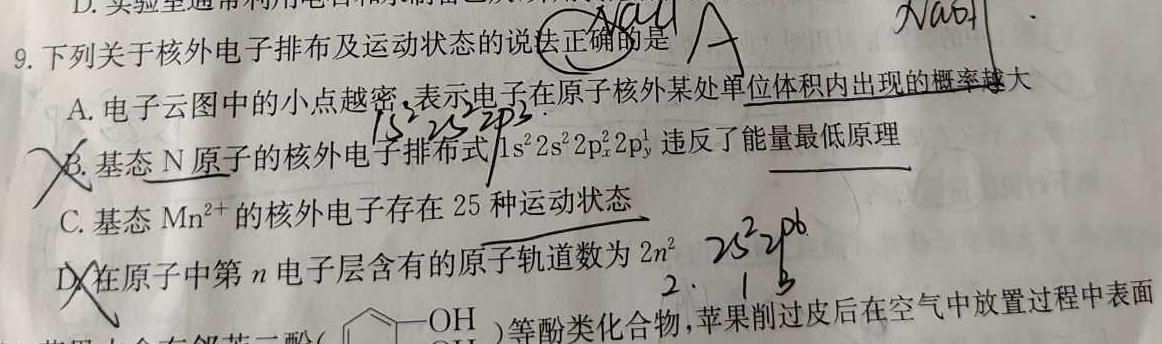 9. 下列关于核外电子排布及运动状态的说法正确的是 A
NaOH
A. 电子云图中的小点越密,表示电子在原子核外某处单位体积内出现的概率越大
1s² 2s² 2p³
B. 基态 N 原子的核外电子排布式 1s²2s²2pₓ²2pᵧ¹ 违反了能量最低原理
C. 基态 Mn²⁺ 的核外电子存在 25 种运动状态
D. 在原子中第 n 电子层含有的原子轨道数为 2n² 2s² 2p⁶
2. 1 3
OH )等酚类化合物,苹果削过皮后在空气中放置过程中表面